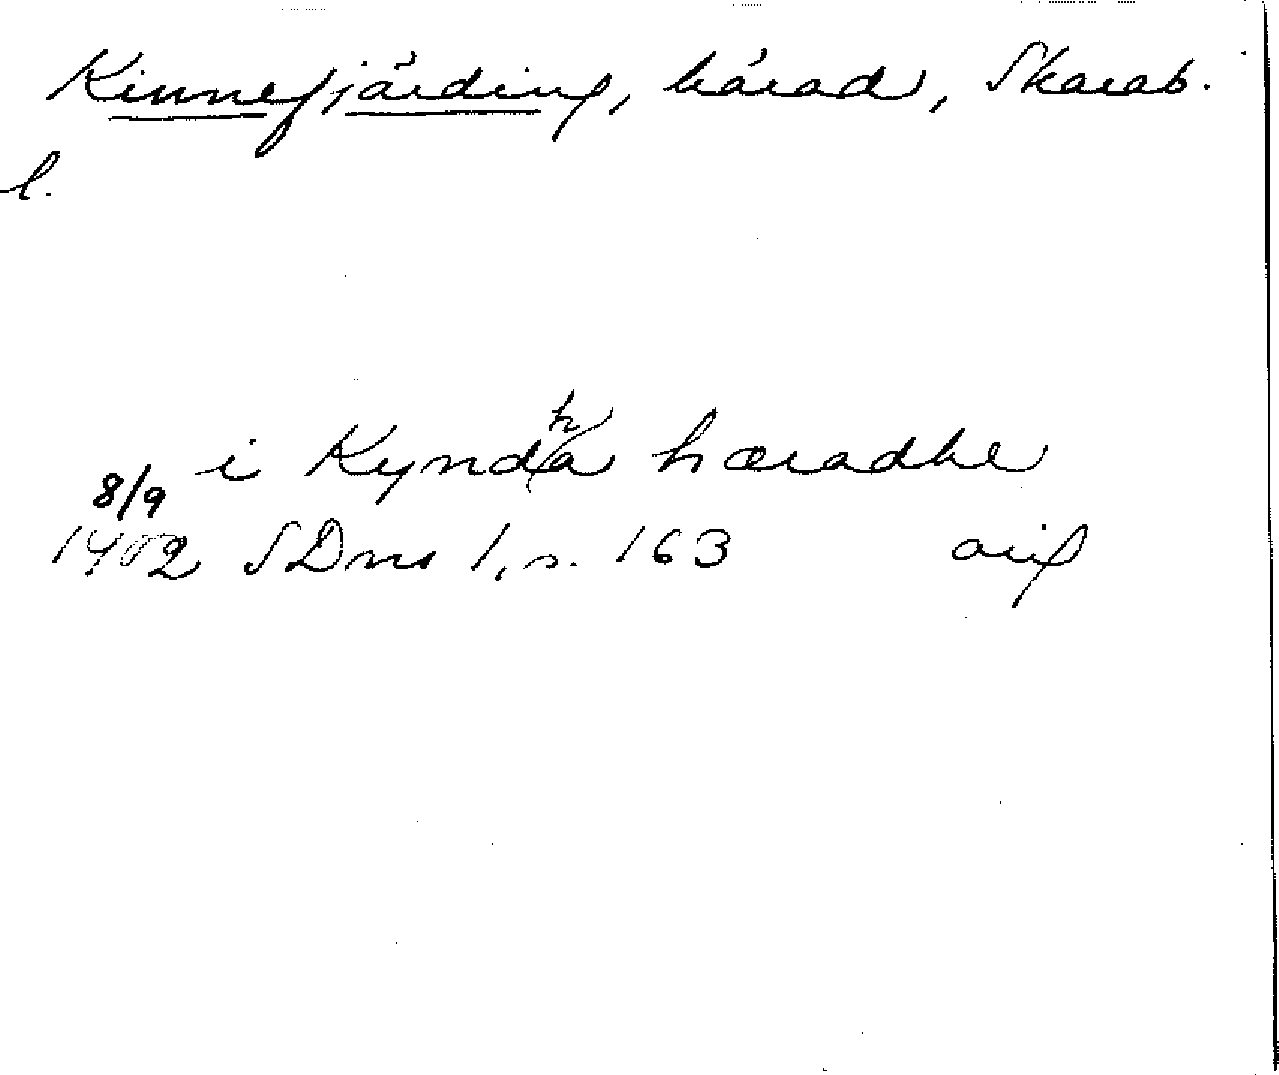 Kinnefjärding, härad, Skarab.
l.
i Kyndha hæradhe
8/9
1402 SDns 1, s. 163 orig